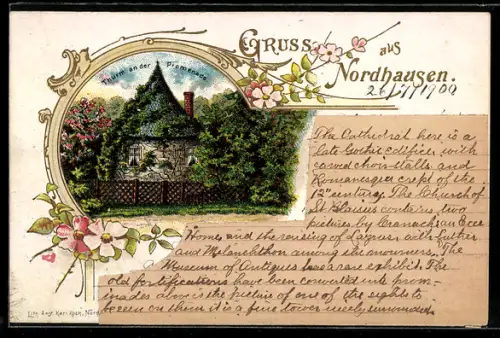 Gruss aus
Nordhausen.
26/7/1900
Thurm an der Promenade
The Cathedral here is a
late Gothic edifice with
carved choir stalls and
Romanesque crypt of the
12th century. The Church of
St Blasius contains two
pictures by Cranach; an Ecce
Homo and the raising of Lazarus with Luther
and Melanchthon among the mourners. The
Museum of Antiques has a rare exhibit. The
old fortifications have been converted into prom-
inades above is the picture of one of the eight to
be seen on them it is a fine tower nicely surrounded.